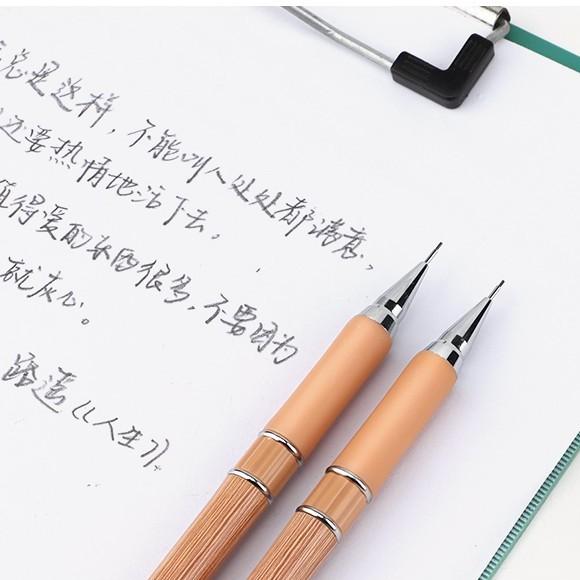 总是这样，不能叫人处处都满意，
还要热情地活下去。
值得爱的东西很多，不要因为
就灰心。
路遥《《人生》》